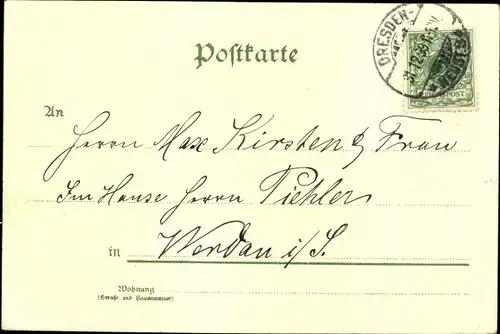 Postkarte
DRESDEN-
31.12.99
An
Herrn Max Kirsten & Frau
Im Hause Herrn Piehler
in Werdau i/S.
Wohnung
(Straße und Hausnummer)